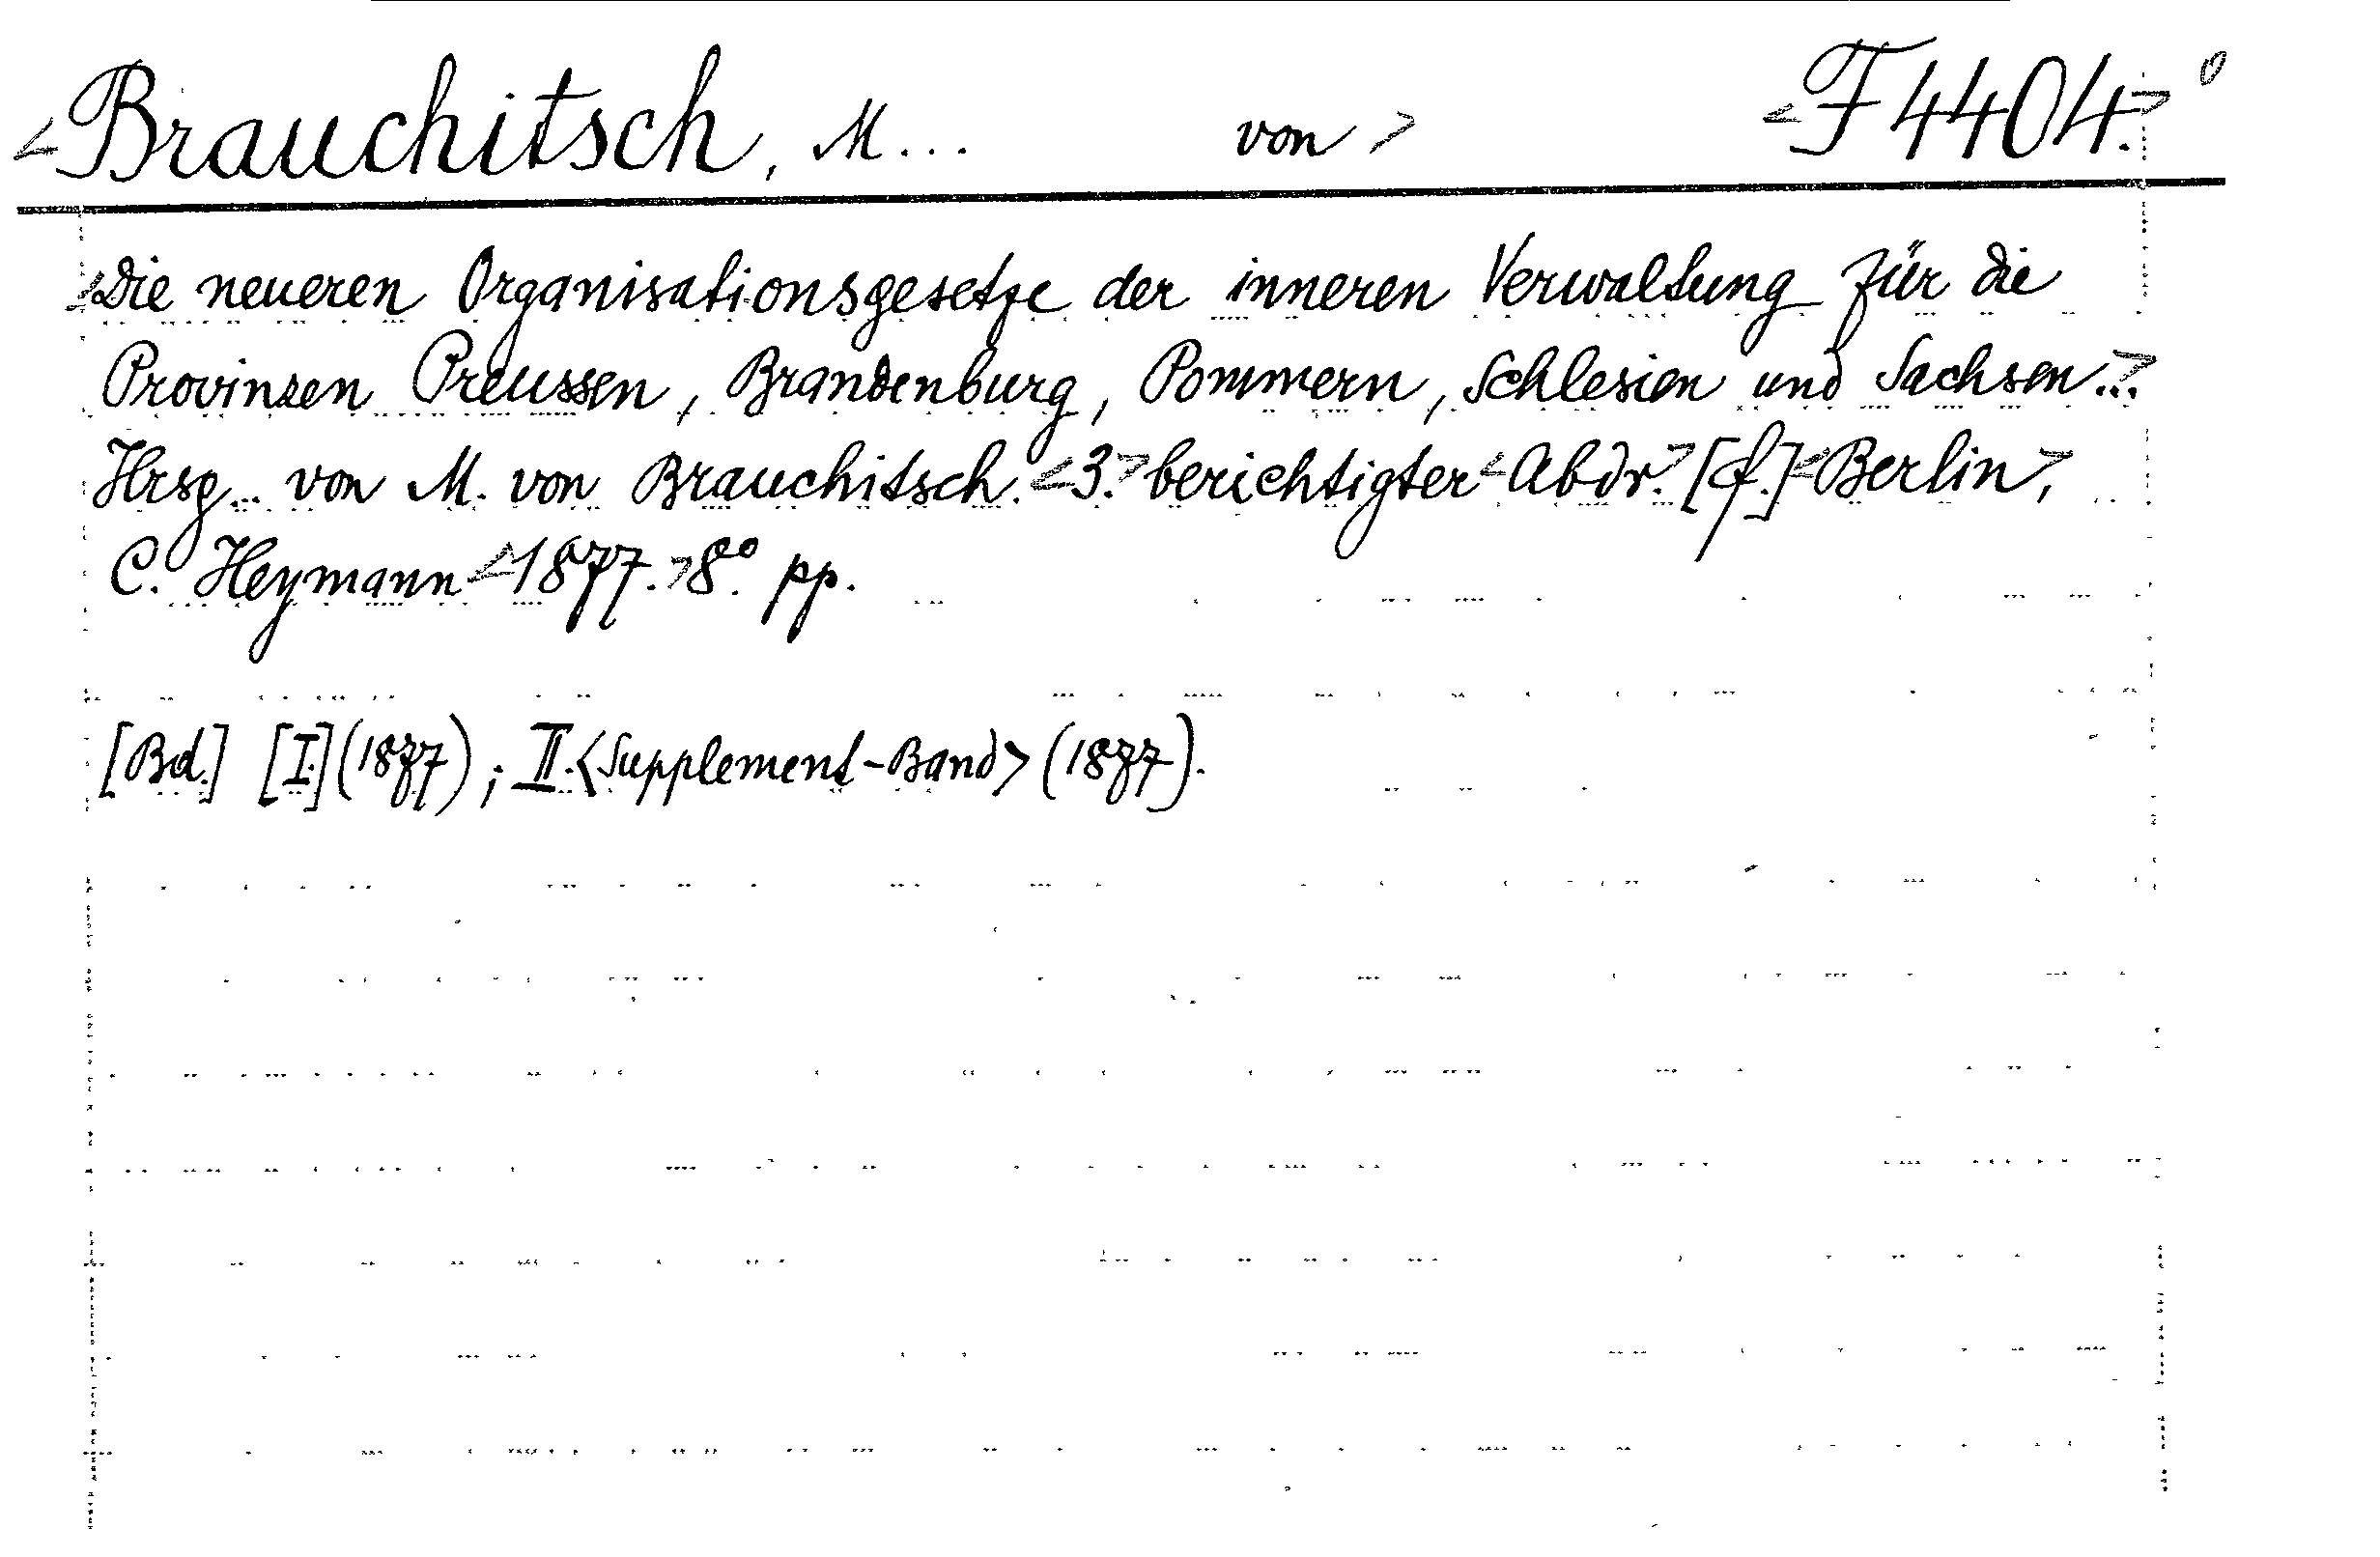 <Brauchitsch, M... von> <F 4404.> 0
<Die neueren Organisationsgesetze der inneren Verwaltung für die
Provinzen Preussen, Brandenburg, Pommern, Schlesien und Sachsen...>
Hrsg... von M. von Brauchitsch. <3.> berichtigter <Abdr.> [f.] <Berlin>,
C. Heymann <1877.> 8°. pp.
[Bd.] [I.] (1877); II. <Supplement-Band> (1877).